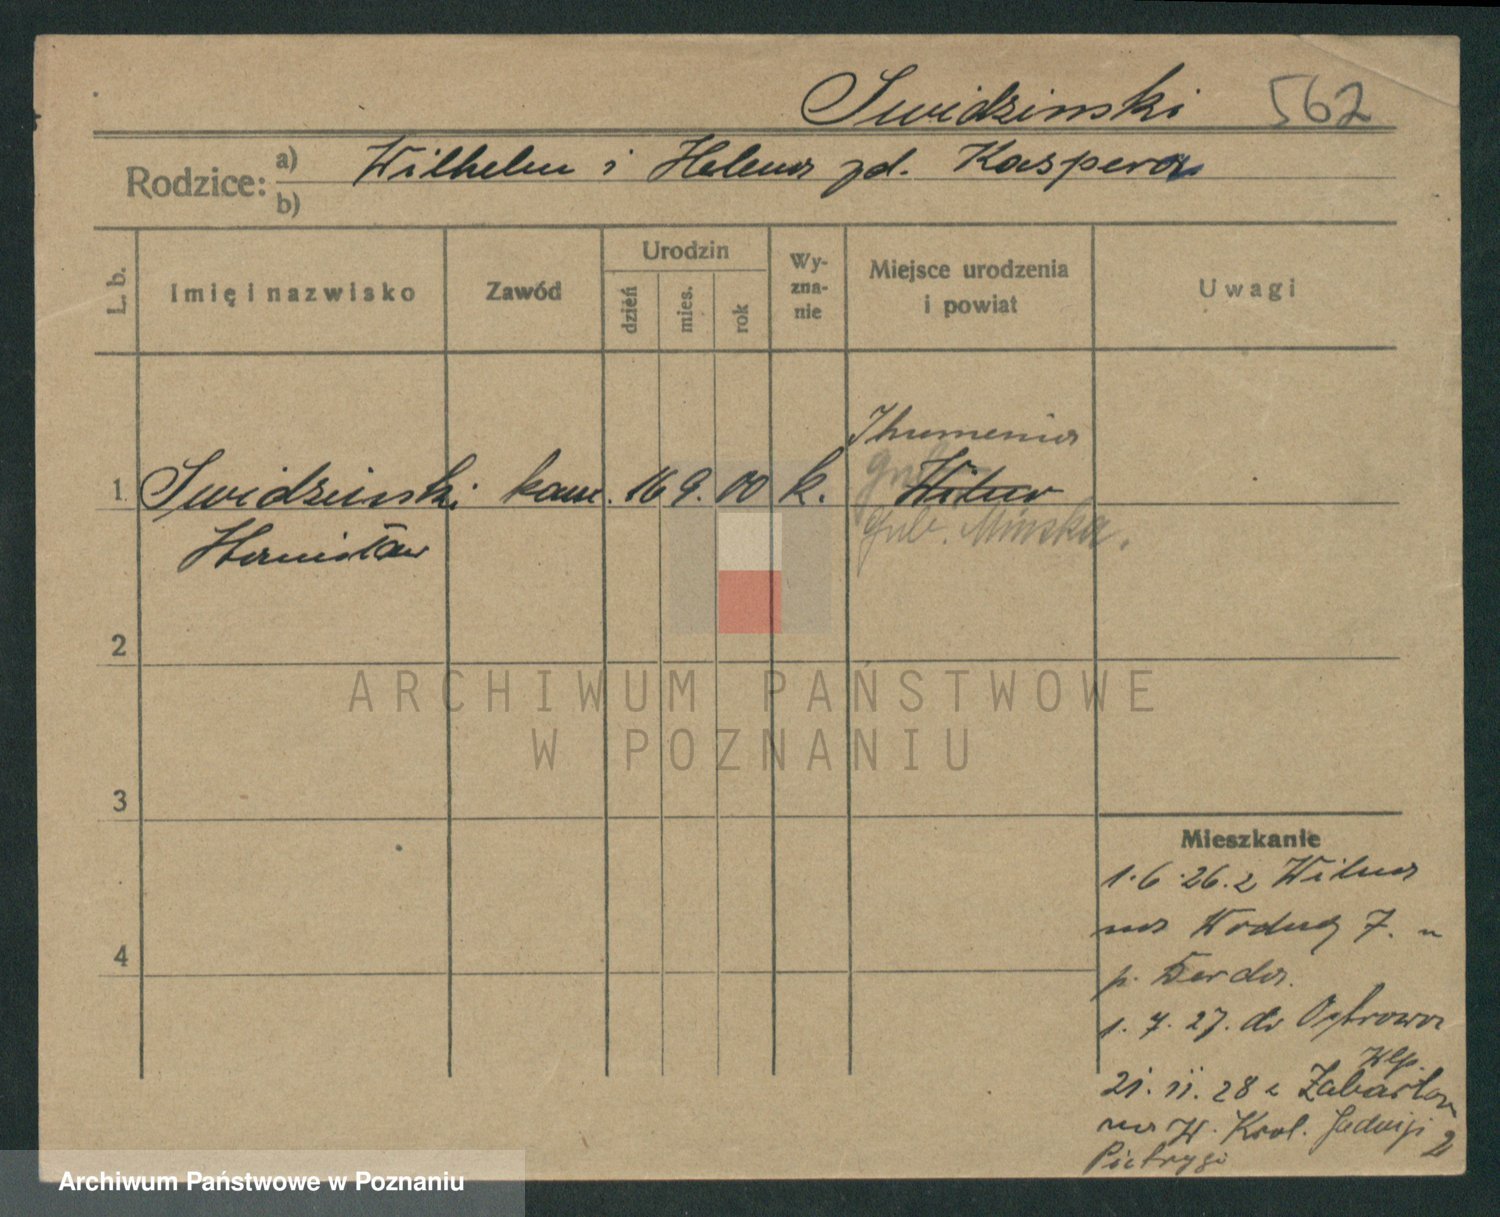 Swidzinski 562
Rodzice: a) Wilhelm i Helena zd. Kaspera
b)
L. b. Imię i nazwisko Zawód Urodzin dzień mies. rok Wy-zna-nie Miejsce urodzenia i powiat Uwagi
Ihumenia
1. Swidzinski kaw. 16 9. 00 k. Wilno
Stanisław gub. Mińska.
2
ARCHIWUM PAŃSTWOWE
W POZNANIU
3
Mieszkanie
1.6.26. z Wilna
na Wodną 7. u
4
p. Berda.
1. 7. 27. do Ostrowa
Wlp.
21. 11. 28 z Zabartowa
na W. Krol. Jadwigi 2
Pietrygi
Archiwum Państwowe w Poznaniu